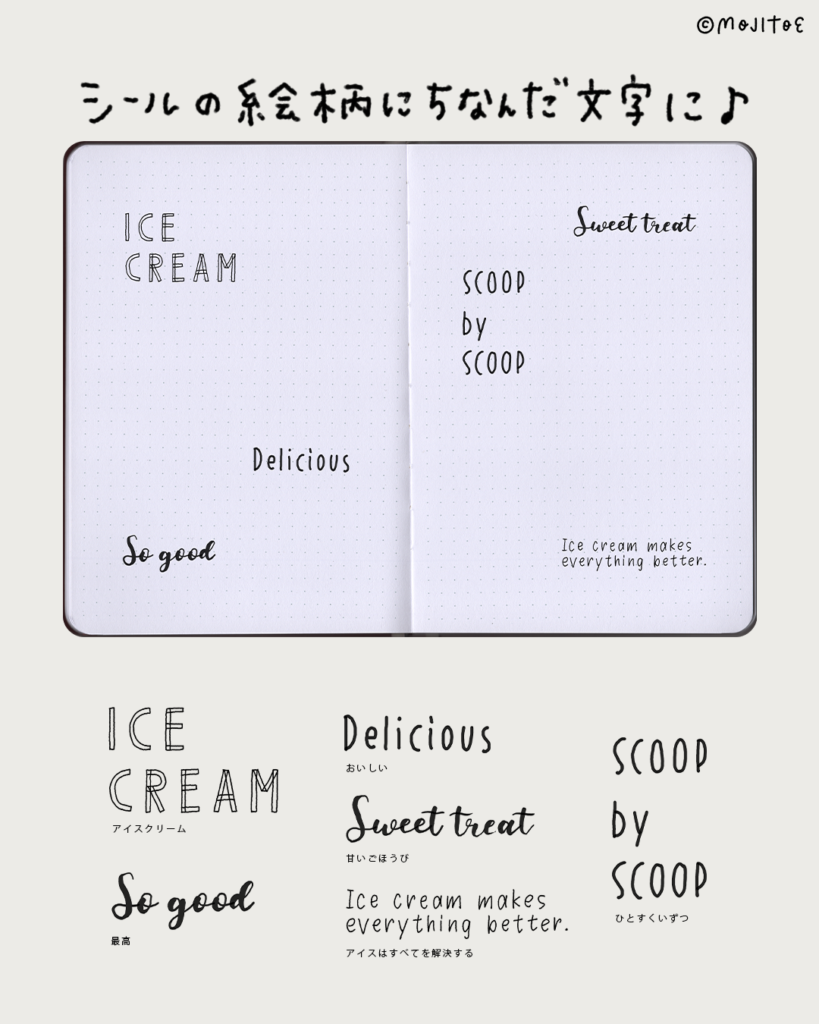 ©MOJITOE
シールの絵柄にちなんだ文字に♪
ICE
CREAM
Sweet treat
SCOOP
by
SCOOP
Delicious
So good
Ice cream makes
everything better.
ICE
CREAM
アイスクリーム
So good
最高
Delicious
おいしい
Sweet treat
甘いごほうび
Ice cream makes
everything better.
アイスはすべてを解決する
SCOOP
by
SCOOP
ひとすくいずつ